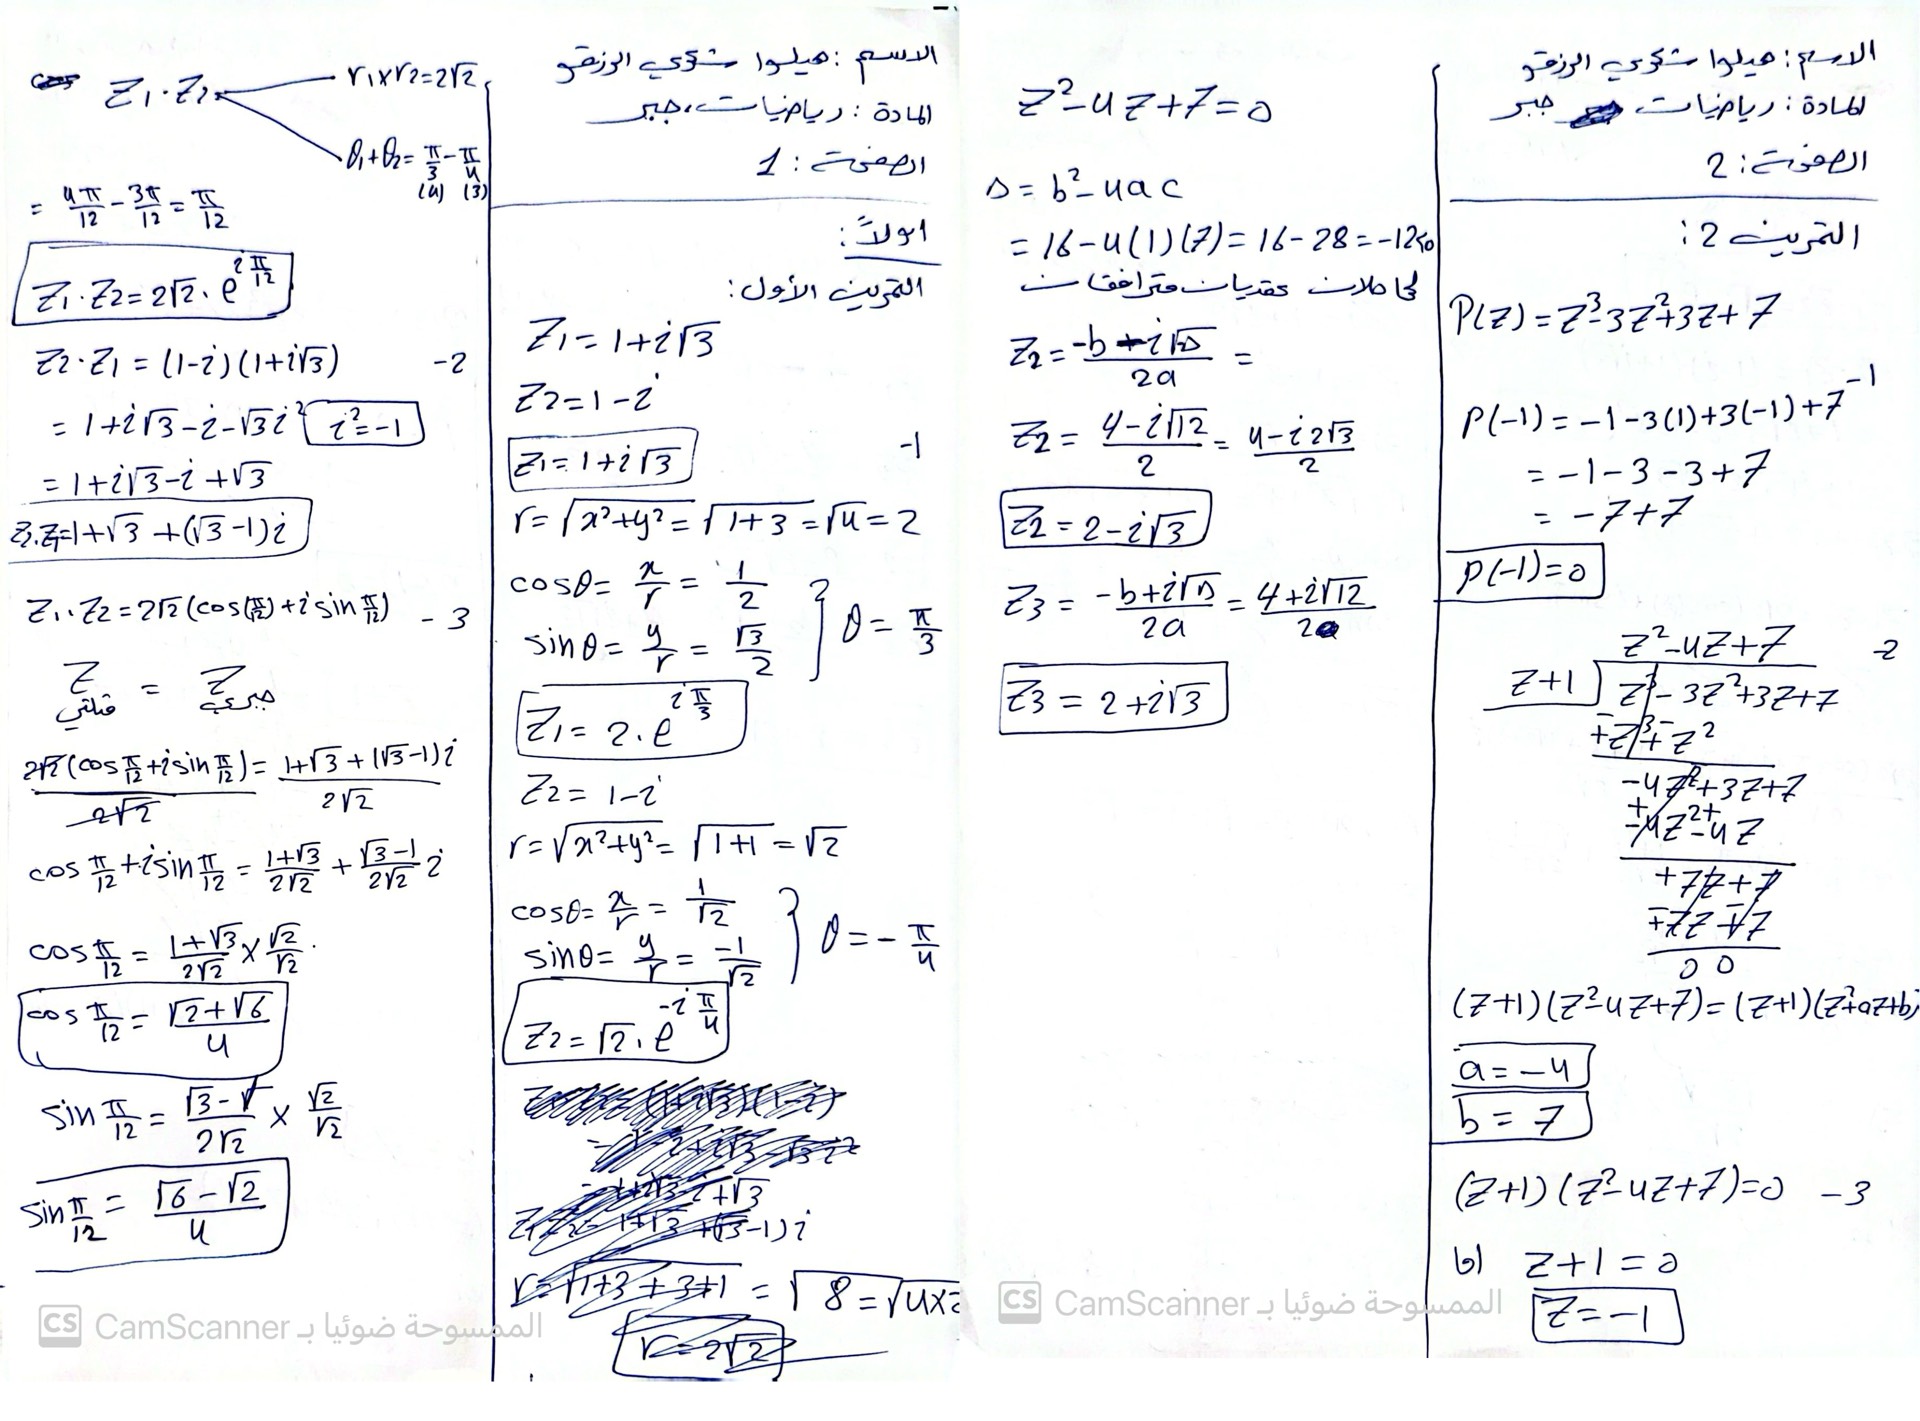 الاسم: هيلوا شكري الزنقو
المادة: رياضيات، جبر
الصفحة: 1
أولاً:
التمرين الأول:
Z1 = 1+i√3
Z2 = 1-i
Z1 = 1+i√3 -1
r = √x²+y² = √1+3 = √4 = 2
cosθ = x/r = 1/2
sinθ = y/r = √3/2 } θ = π/3
Z1 = 2.e^iπ/3
Z2 = 1-i
r = √x²+y² = √1+1 = √2
cosθ = x/r = 1/√2
sinθ = y/r = -1/√2 } θ = -π/4
Z2 = √2.e^-iπ/4
r = √1+3+3+1 = √8 = √4x2
r = 2√2
Z1.Z2 r1xr2 = 2√2
θ1+θ2 = π/3 - π/4
(4) (3)
= 4π/12 - 3π/12 = π/12
Z1.Z2 = 2√2.e^iπ/12
Z2.Z1 = (1-i)(1+i√3) -2
= 1+i√3-i-√3i² i²=-1
= 1+i√3-i+√3
Z2.Z1=1+√3+(√3-1)i
Z1.Z2 = 2√2(cos(π/12)+i sin π/12) -3
Z = Z
مثلثي جبري
2√2(cos π/12+i sin π/12)/2√2 = 1+√3+(√3-1)i/2√2
cos π/12+i sin π/12 = 1+√3/2√2 + √3-1/2√2 i
cos π/12 = 1+√3/2√2 x √2/√2
cos π/12 = √2+√6/4
sin π/12 = √3-√/2√2 x √2/√2
sin π/12 = √6-√2/4
CS الممسوحة ضوئيا بـ CamScanner
الاسم: هيلوا شكري الزنقو
المادة: رياضيات جبر
الصفحة: 2
التمرين 2:
P(Z) = Z³-3Z²+3Z+7
-1
P(-1) = -1-3(1)+3(-1)+7
= -1-3-3+7
= -7+7
P(-1)=0
Z²-4Z+7 -2
Z+1 Z³-3Z²+3Z+7
+Z³+Z²
-4Z²+3Z+7
-4Z²-4Z
+7Z+7
+7Z+7
0 0
(Z+1)(Z²-4Z+7)=(Z+1)(Z²+aZ+b)
a=-4
b=7
(Z+1)(Z²-4Z+7)=0 -3
إما Z+1=0
Z=-1
Z²-4Z+7=0
Δ = b²-4ac
= 16-4(1)(7) = 16-28 = -12<0
حلان عقديان مترافقان
Z2 = -b-i√Δ/2a =
Z2 = 4-i√12/2 = 4-i2√3/2
Z2 = 2-i√3
Z3 = -b+i√Δ/2a = 4+2i√12/2
Z3 = 2+i√3
CS الممسوحة ضوئيا بـ CamScanner